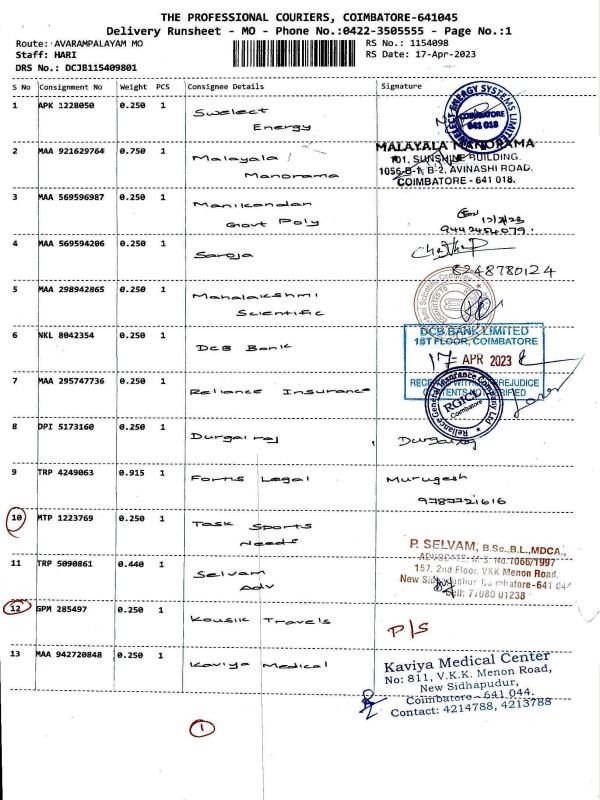 THE PROFESSIONAL COURIERS, COIMBATORE-641045
Delivery Runsheet - MO - Phone No.:0422-3505555 - Page No.:1
Route: AVARAMPALAYAM MO
RS No.: 1154098
Staff: HARI
RS Date: 17-Apr-2023
DRS No.: DCJB115409801
S No Consignment No Weight PCS Consignee Details Signature
1 APK 1228050 0.250 1 Swelect
Energy
ENERGY SYSTEMS LIMITED
COIMBATORE
641 018
2 MAA 921629764 0.750 1 Malayala
Manorama
MALAYALA MANORAMA
101, SUNSHINE BUILDING.
1056-B-1, B-2, AVINASHI ROAD,
COIMBATORE - 641 018.
3 MAA 569596987 0.250 1 Manikandan
Govt Poly
9442454079
4 MAA 569594206 0.250 1 Saroja
8248780124
5 MAA 298942865 0.250 1 Mahalakshmi
Scientific
6 NKL 8042354 0.250 1 DCB Bank
DCB BANK LIMITED
1ST FLOOR, COIMBATORE
17 APR 2023
7 MAA 295747736 0.250 1 Reliance Insurance
Reliance General Insurance Company Ltd
RGICL
Coimbatore
8 DPI 5173160 0.250 1 Durgairaj
9 TRP 4249063 0.915 1 Fortis Legal
Murugesh
9787721616
10 MTP 1223769 0.250 1 Task Sports
Needs
11 TRP 5090861 0.440 1 Selvam
Adv
P. SELVAM, B.Sc.,B.L.,MDCA.,
ADVOCATE, M.S. No.1066/1997
157, 2nd Floor, VKK Menon Road,
New Sidhapudur Coimbatore-641 044
Cell: 77080 01238
12 GPM 285497 0.250 1 Kousik Travels
P/S
13 MAA 942720848 0.250 1 Kaviya Medical
Kaviya Medical Center
No: 811, V.K.K. Menon Road,
New Sidhapudur,
Coimbatore - 641 044.
Contact: 4214788, 4213788
1